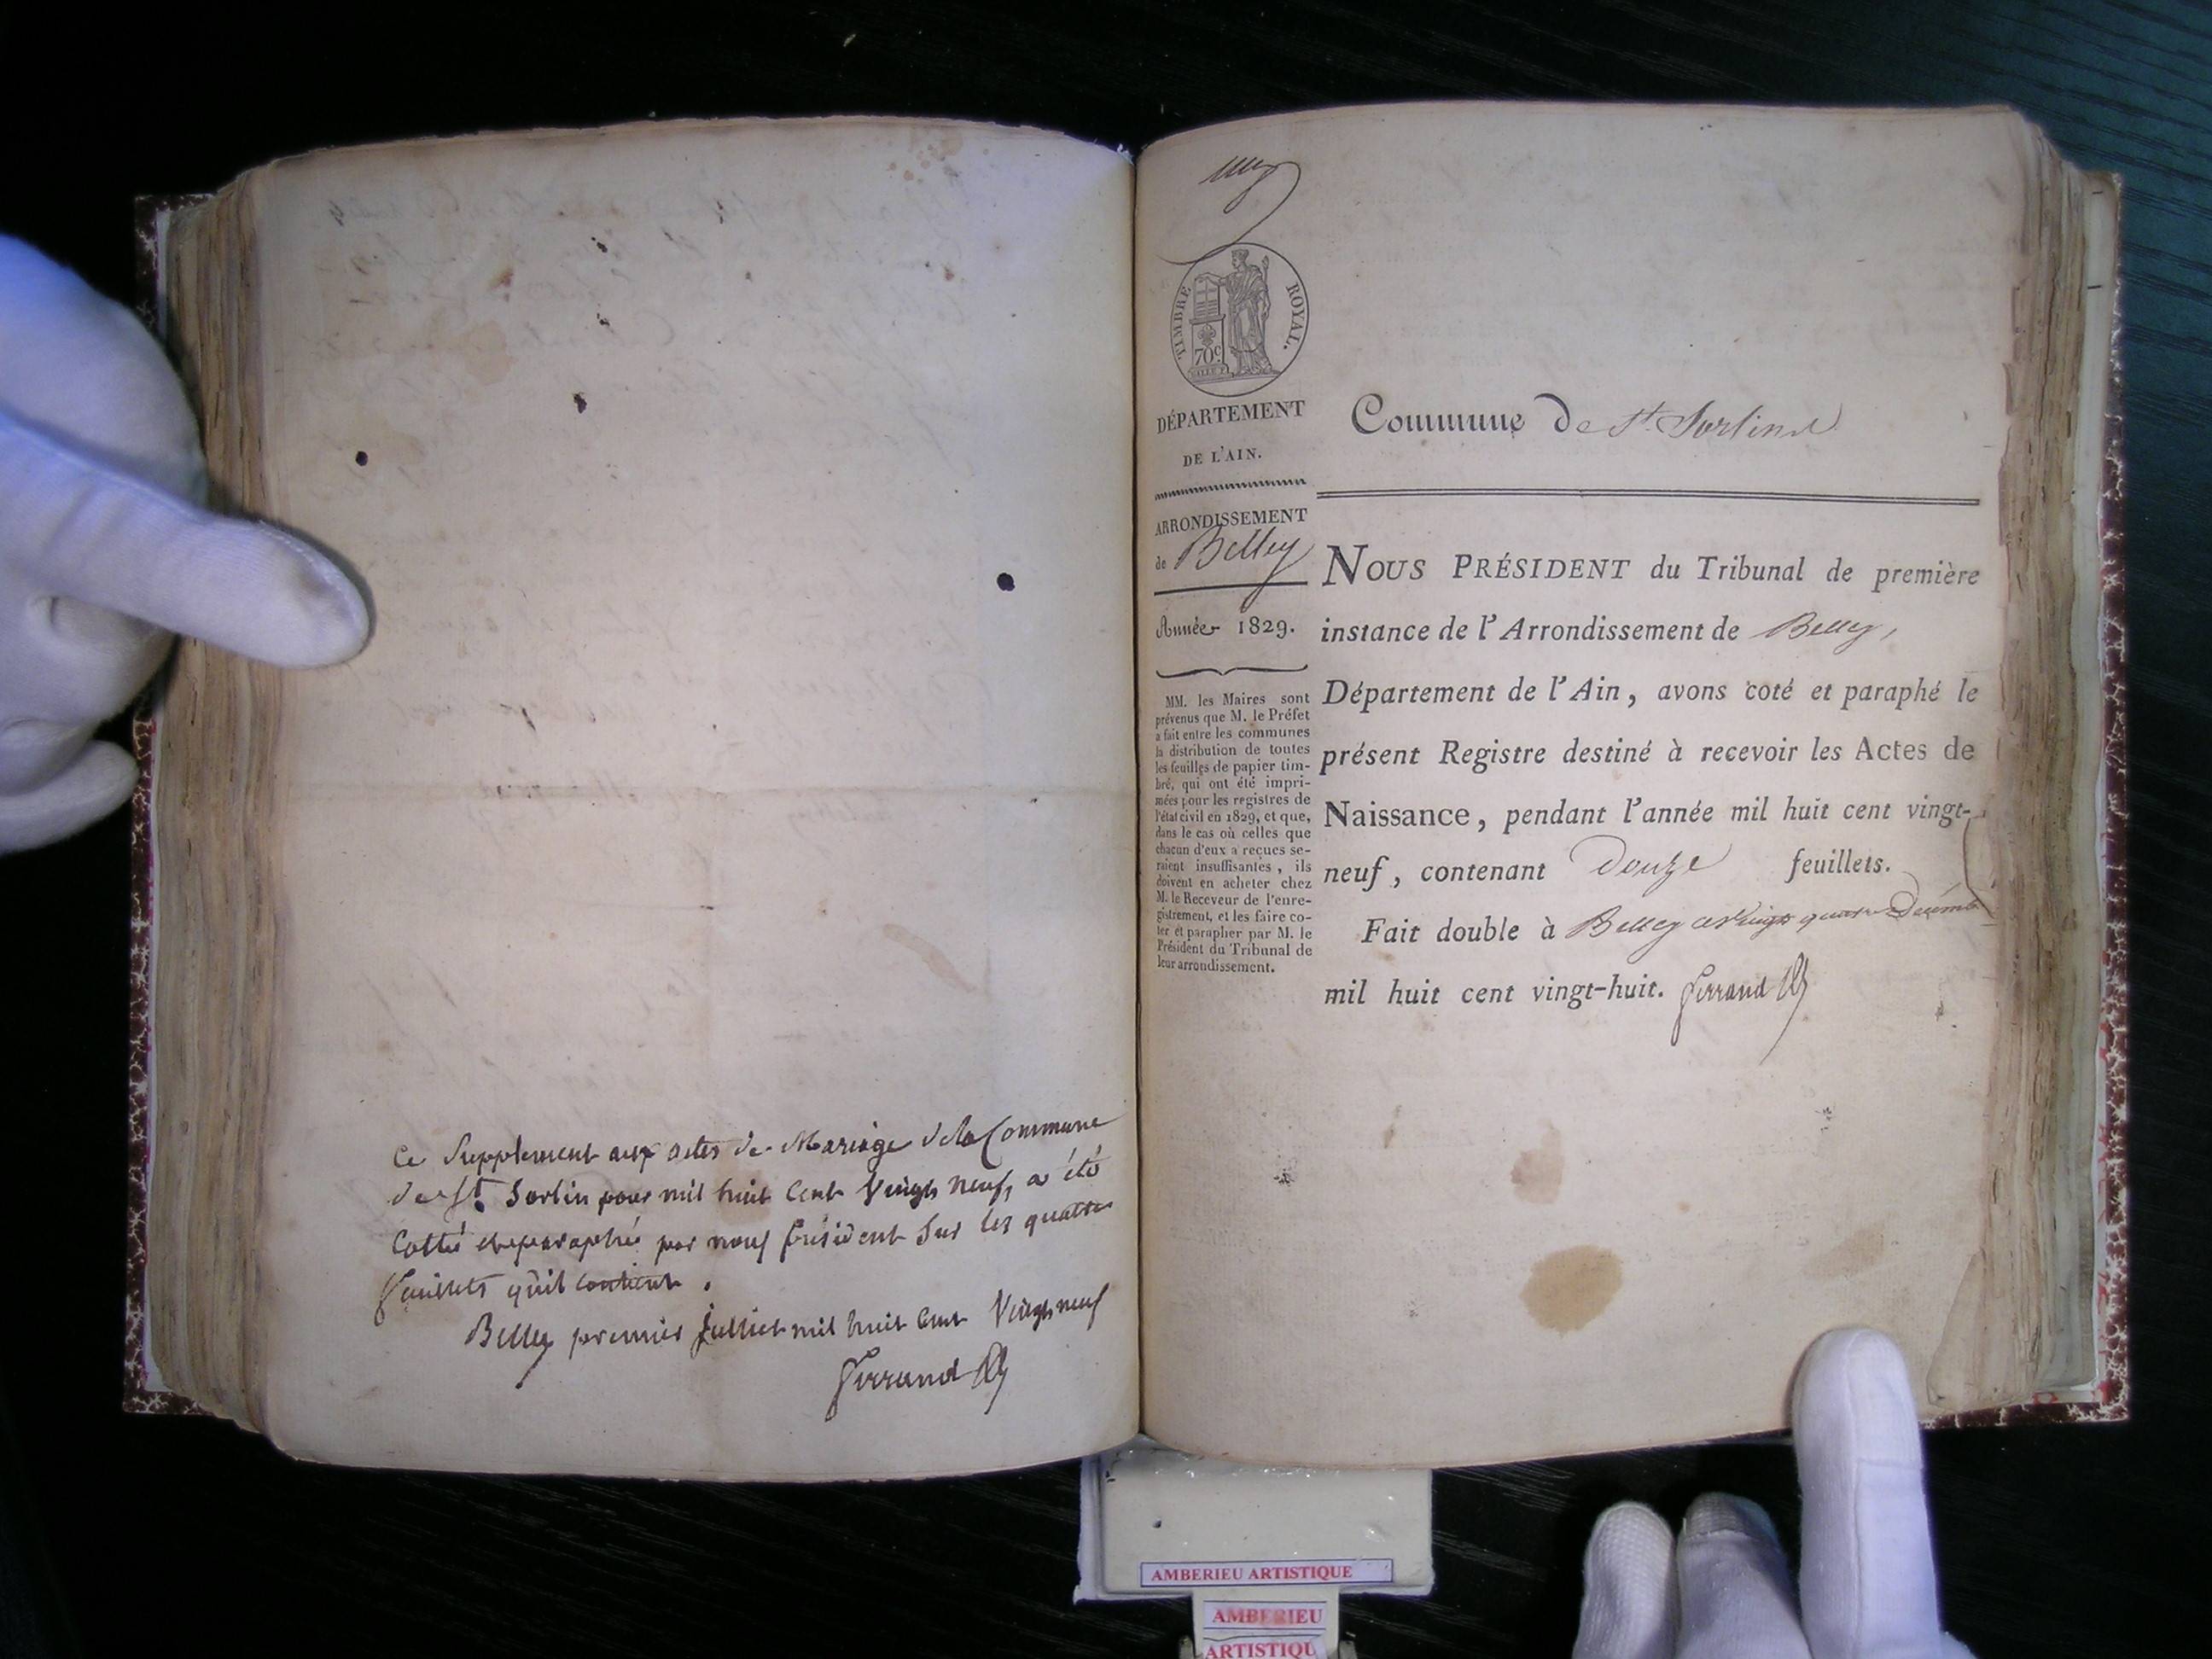 Ce Supplement aux actes de Mariage de la Commune
de St. Sorlin pour mil huit Cent Vingt neuf, a été
Cotté et paraphé par nous président Sur les quatre
feuillets qu'il contient.
Belley premier Juillet mil huit Cent Vingt neuf
Ferrand
TIMBRE ROYAL.
70c
DÉPARTEMENT
DE L'AIN.
ARRONDISSEMENT
de Belley
Année 1829.
MM. les Maires sont
prévenus que M. le Préfet
a fait entre les communes
la distribution de toutes
les feuilles de papier tim-
bré, qui ont été impri-
mées pour les registres de
l'état civil en 1829, et que,
dans le cas où celles que
chacun d'eux a reçues se-
raient insuffisantes, ils
doivent en acheter chez
M. le Receveur de l'enre-
gistrement, et les faire co-
ter et parapher par M. le
Président du Tribunal de
leur arrondissement.
Commune De St. Sorlin
NOUS PRÉSIDENT du Tribunal de première
instance de l'Arrondissement de Belley,
Département de l'Ain, avons coté et paraphé le
présent Registre destiné à recevoir les Actes de
Naissance, pendant l'année mil huit cent vingt-
neuf, contenant Douze feuillets.
Fait double à Belley ce Vingt quatre Décemb
mil huit cent vingt-huit. Ferrand
AMBERIEU ARTISTIQUE
AMBERIEU
ARTISTIQU